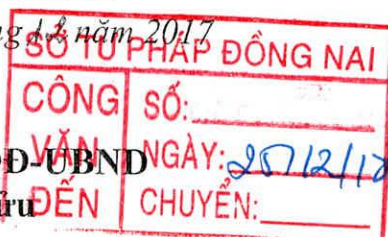 ng 12 năm 2017
SỞ TƯ PHÁP ĐỒNG NAI
CÔNG VĂN ĐẾN
SỐ:
NGÀY: 25/12/17
CHUYỂN:
Đ-UBND
ửu